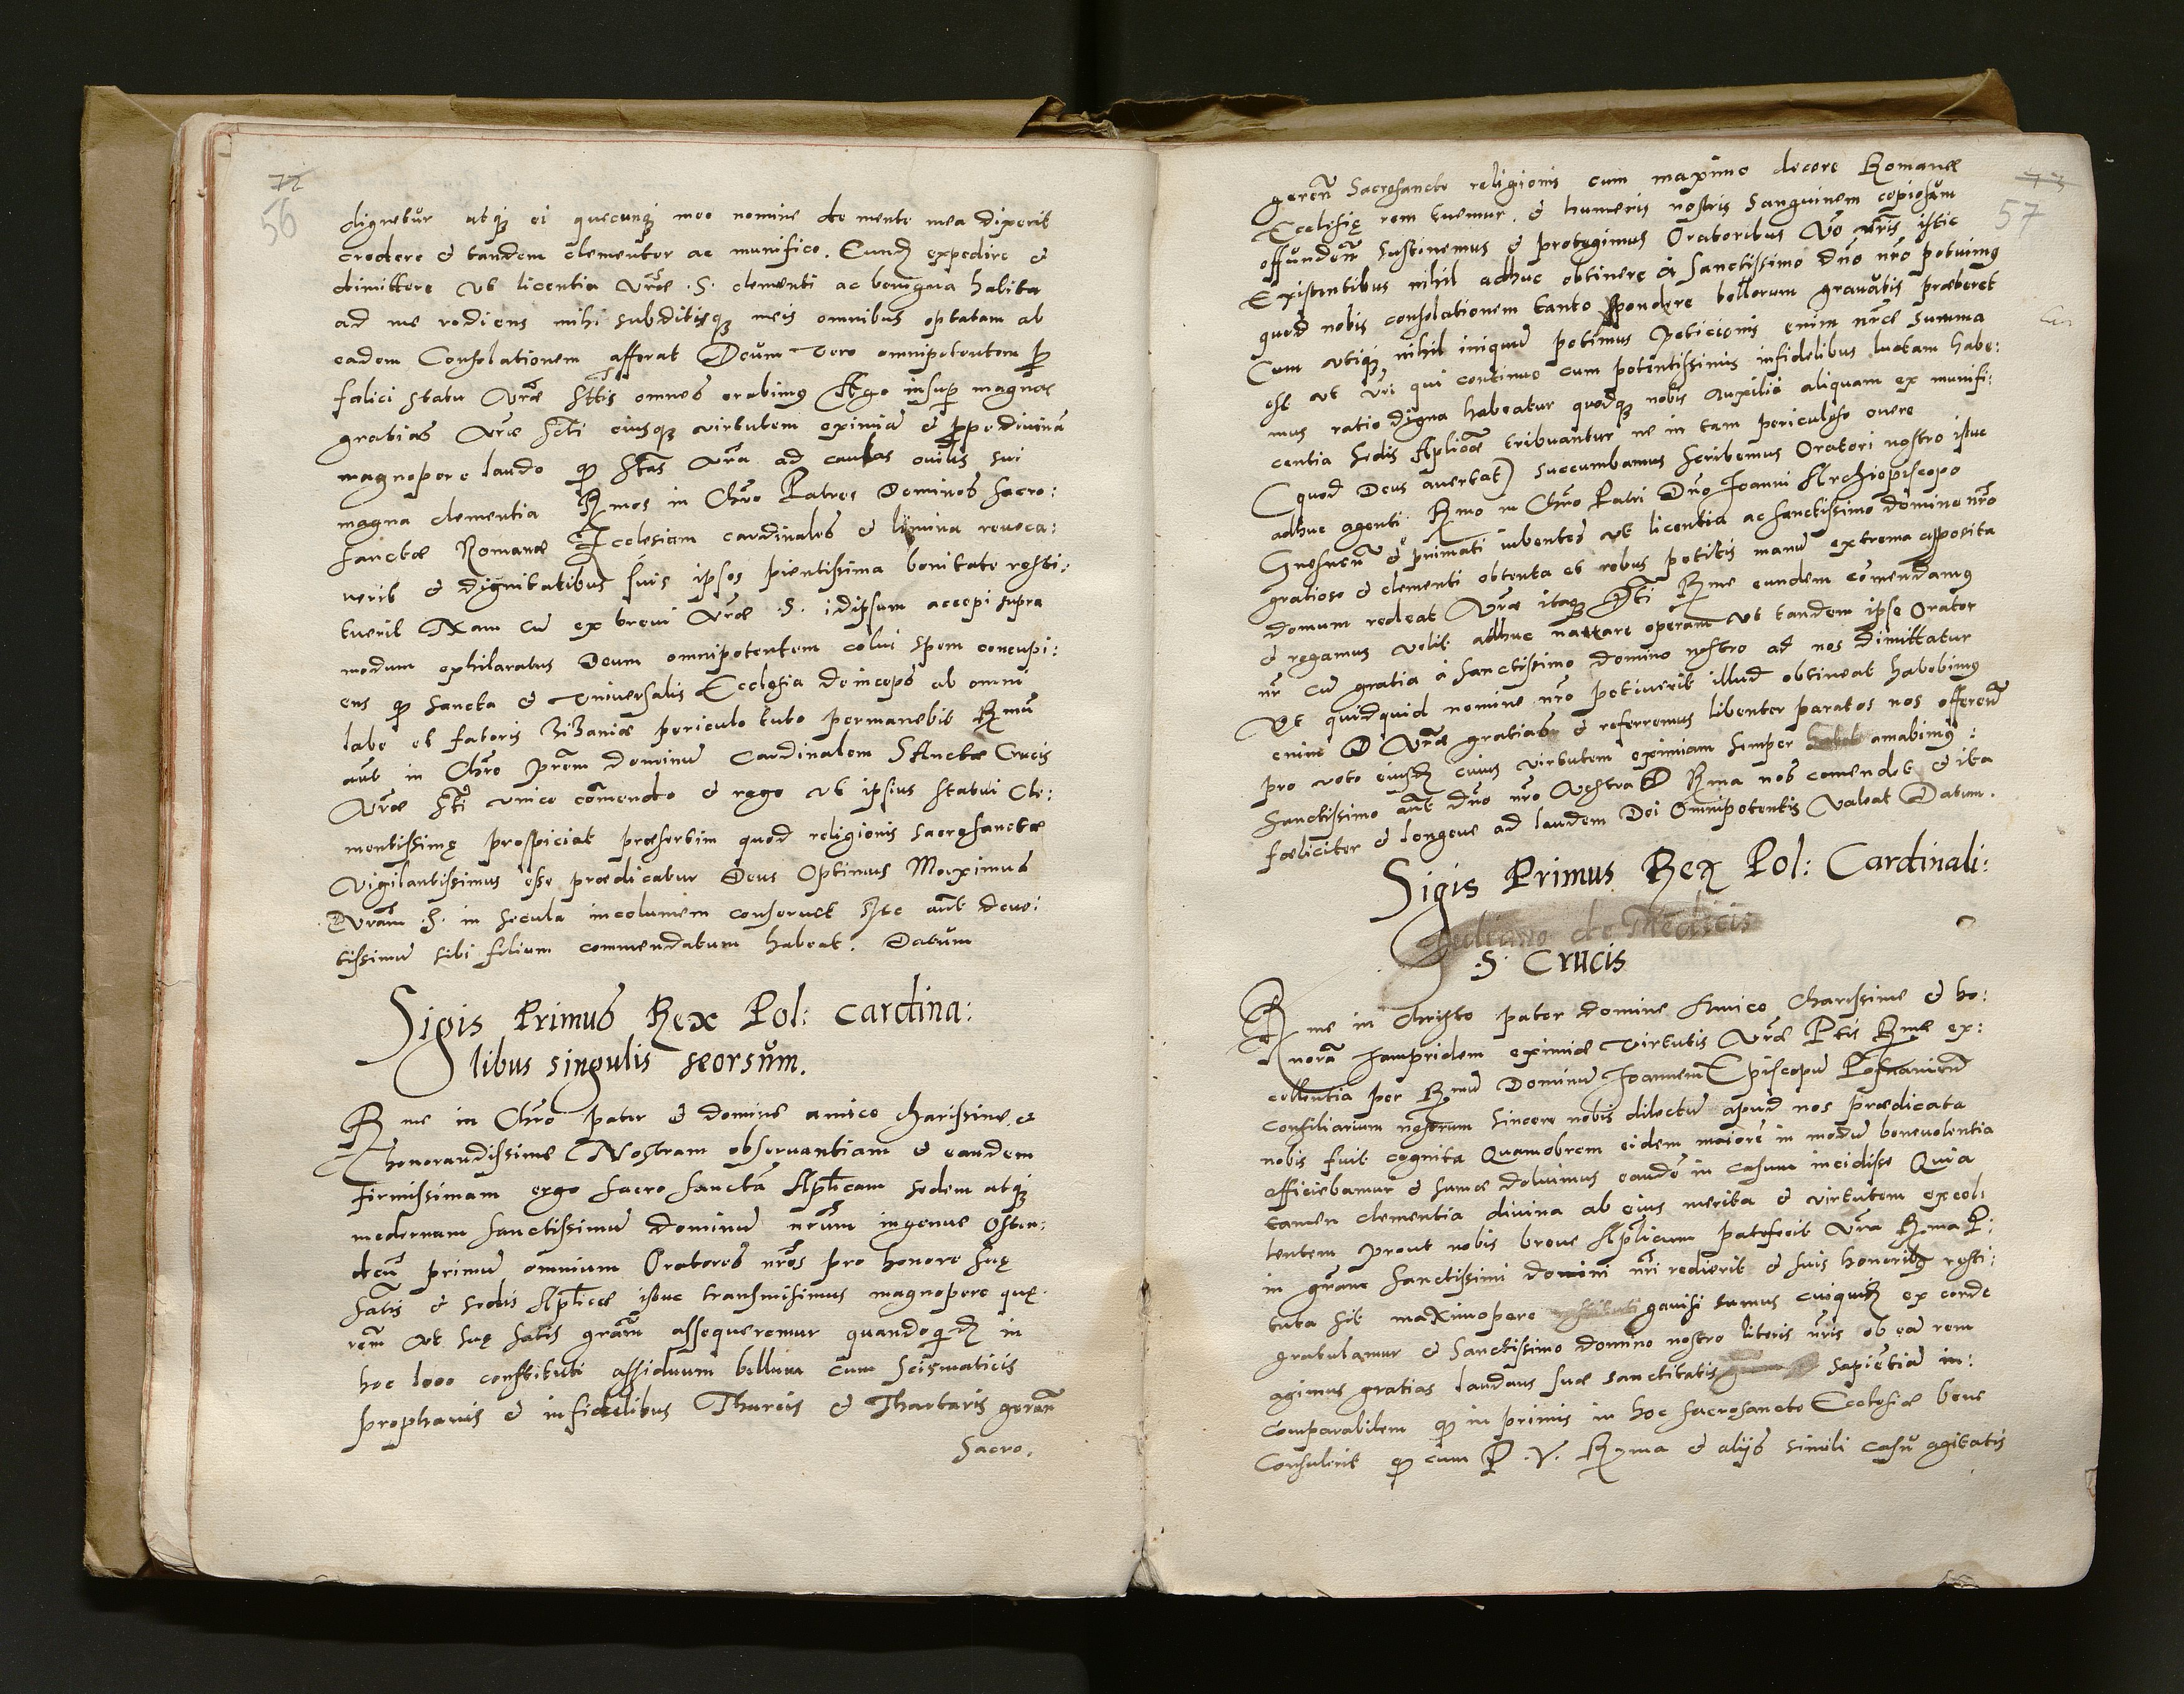 72
56
dignetur atq3 ei quecunq3 meo nomine de mente mea dixerit
credere & tandem clementer ac munifice. Eund expedire &
dimittere vt licentia vrae .S. clementi ac benigna habita
ad me rediens mihi subditisq3 meis omnibus optatam ab
eadem Consolationem afferat Deum vero omnipotentem p
felici statu vrae Sttis omnes orabimus Ago insup magnas
gratias vrae Scti eiusq3 virtutem eximia & ppe diuina
magnopere laudo q Stas vra ad caulas ouilis sui
magna clementia Rmos in Chro Patres Dominos sacro:
sanctae Romanae Ecclesiam cardinales & limina reuoca:
uerit & dignitatibus suis ipsos pientissima bonitate resti:
tuerit Nam cu ex breui vrae .S. idipsum accepi supra
modum exhilaratus Deum omnipotentem colui spem concupi:
ens q sancta & vniuersalis Ecclesia deinceps ab omni
labe et fatoris zizaniae periculo tuto permanebit Rmu
aut in Chro prem dominum Cardinalem SAnctae Crucis
Vrae Sti vnice comendo & rogo vt ipsius statui Cle:
mentissime prospiciat praesertim quod religionis sacrosanctae
vigilantissimus esse praedicatur Deus Optimus Maximus
Vram .S. in secula incolumem conseruet Me aut deuo:
tissimu sibi filium commendatum habeat. Datum
Sigis Primus Rex Pol: Cardina:
libus singulis seorsum.
Rme in Chro pater & domine amice charissime &
honorandissime Nostram obseruantiam & eandem
firmissimam erga sacrosancta Aplicam sedem atq3
modernum sanctissimu dominu nrum ingenue Osten:
den primu omnium Oratores nros pro honore sue
Satis & sedis Aplicae istuc transmisimus magnopere que
rem vt sue Satis gram assequeremur quandoqd in
hoc loco constituti assiduum bellum cum Scismaticis
prophanis & infidelibus Thurcis & Thartaris geren
Sacro.
73
57
geren Sacrosancte religionis cum maximo decore Romanae
Ecclesie rem tuemur. & humeris nostris sanguinem copiosum
effunden sustinemus & protegimus Oratoribus vo nris istic
Existentibus nihil adhuc obtinere a Sanctissimo Dno nro potuimus
quod nobis consolationem tanto pondere bellorum grauatis praeberet
Cum vtiq3 nihil iniquu petimus peticionis enim nrae summa
est vt nri qui continuo cum potentissimis infidelibus luctam habe:
mus ratio digna habeatur quodq3 nobis auxilia aliquam ex munifi:
centia Sedis Aplicae tribuantur ne in tam periculoso onere
(quod Deus auertat) succumbamus scribemus Oratori nostro istuc
adhuc agenti Rmo in Chro Patri Dno Joanni Archiepiscopo
Gnesnen & primati iubentes vt licentia ac sanctissimo domino nro
gratiose & clementi obtenta et rebus petitis manu extrema apposita
domum redeat Vrae itaq3 Dti Rme eundem comendamus
& rogamus velit adhuc nauare operam vt tandem ipse Orator
nr cu gratia a sanctissimo domino nostro ad nos dimittatur
Vt quidquid nomine nro petiuerit illud obtineat habebimus
enim D Vrae gratias & referremus libenter paratos nos offeren
pro voto eiusd cuius virtutem eximiam semper amabimus:
Sanctissimo aut dno nro Vestra D Rma nos comendet & ita
foeliciter & longeue ad laudem Dei Omnipotentis Valeat Datum.
Sigis Primus Rex Pol: Cardinali:
Juliano de Medicis
.S. Crucis
Rme in Christo pater domine Amice Charissime & ho:
nora Jampridem eximiae virtutis Vrae Ptis Rmae ex:
cellentia per Rmu Dominu Joannem Episcopu Posnanien
Consiliarium nostrum sincere nobis dilectu apud nos praedicata
nobis fuit cognita Quamobrem eidem maiore in modu beneuolentia
efficiebamur & summe doluimus eande in casum incidisse Quia
tamen clementia diuina ab eius merita & virtutem excel:
lentem prout nobis breue Aplicum patefecit Vra Rma P:
in gram Sanctissimi domini nri redierit & suis honoribus resti:
tuta sit maximopere gauisi sumus cuiquid ex corde
gratulamur & Sanctissimo domino nostro literis nris ob ea rem
agimus gratias laudans suae sanctitatis sapientia in:
comparabilem q in primis in hoc sacrosancte Ecclesiae bene
Consulerit q cum P .V. Rma & alijs simili casu agitatis